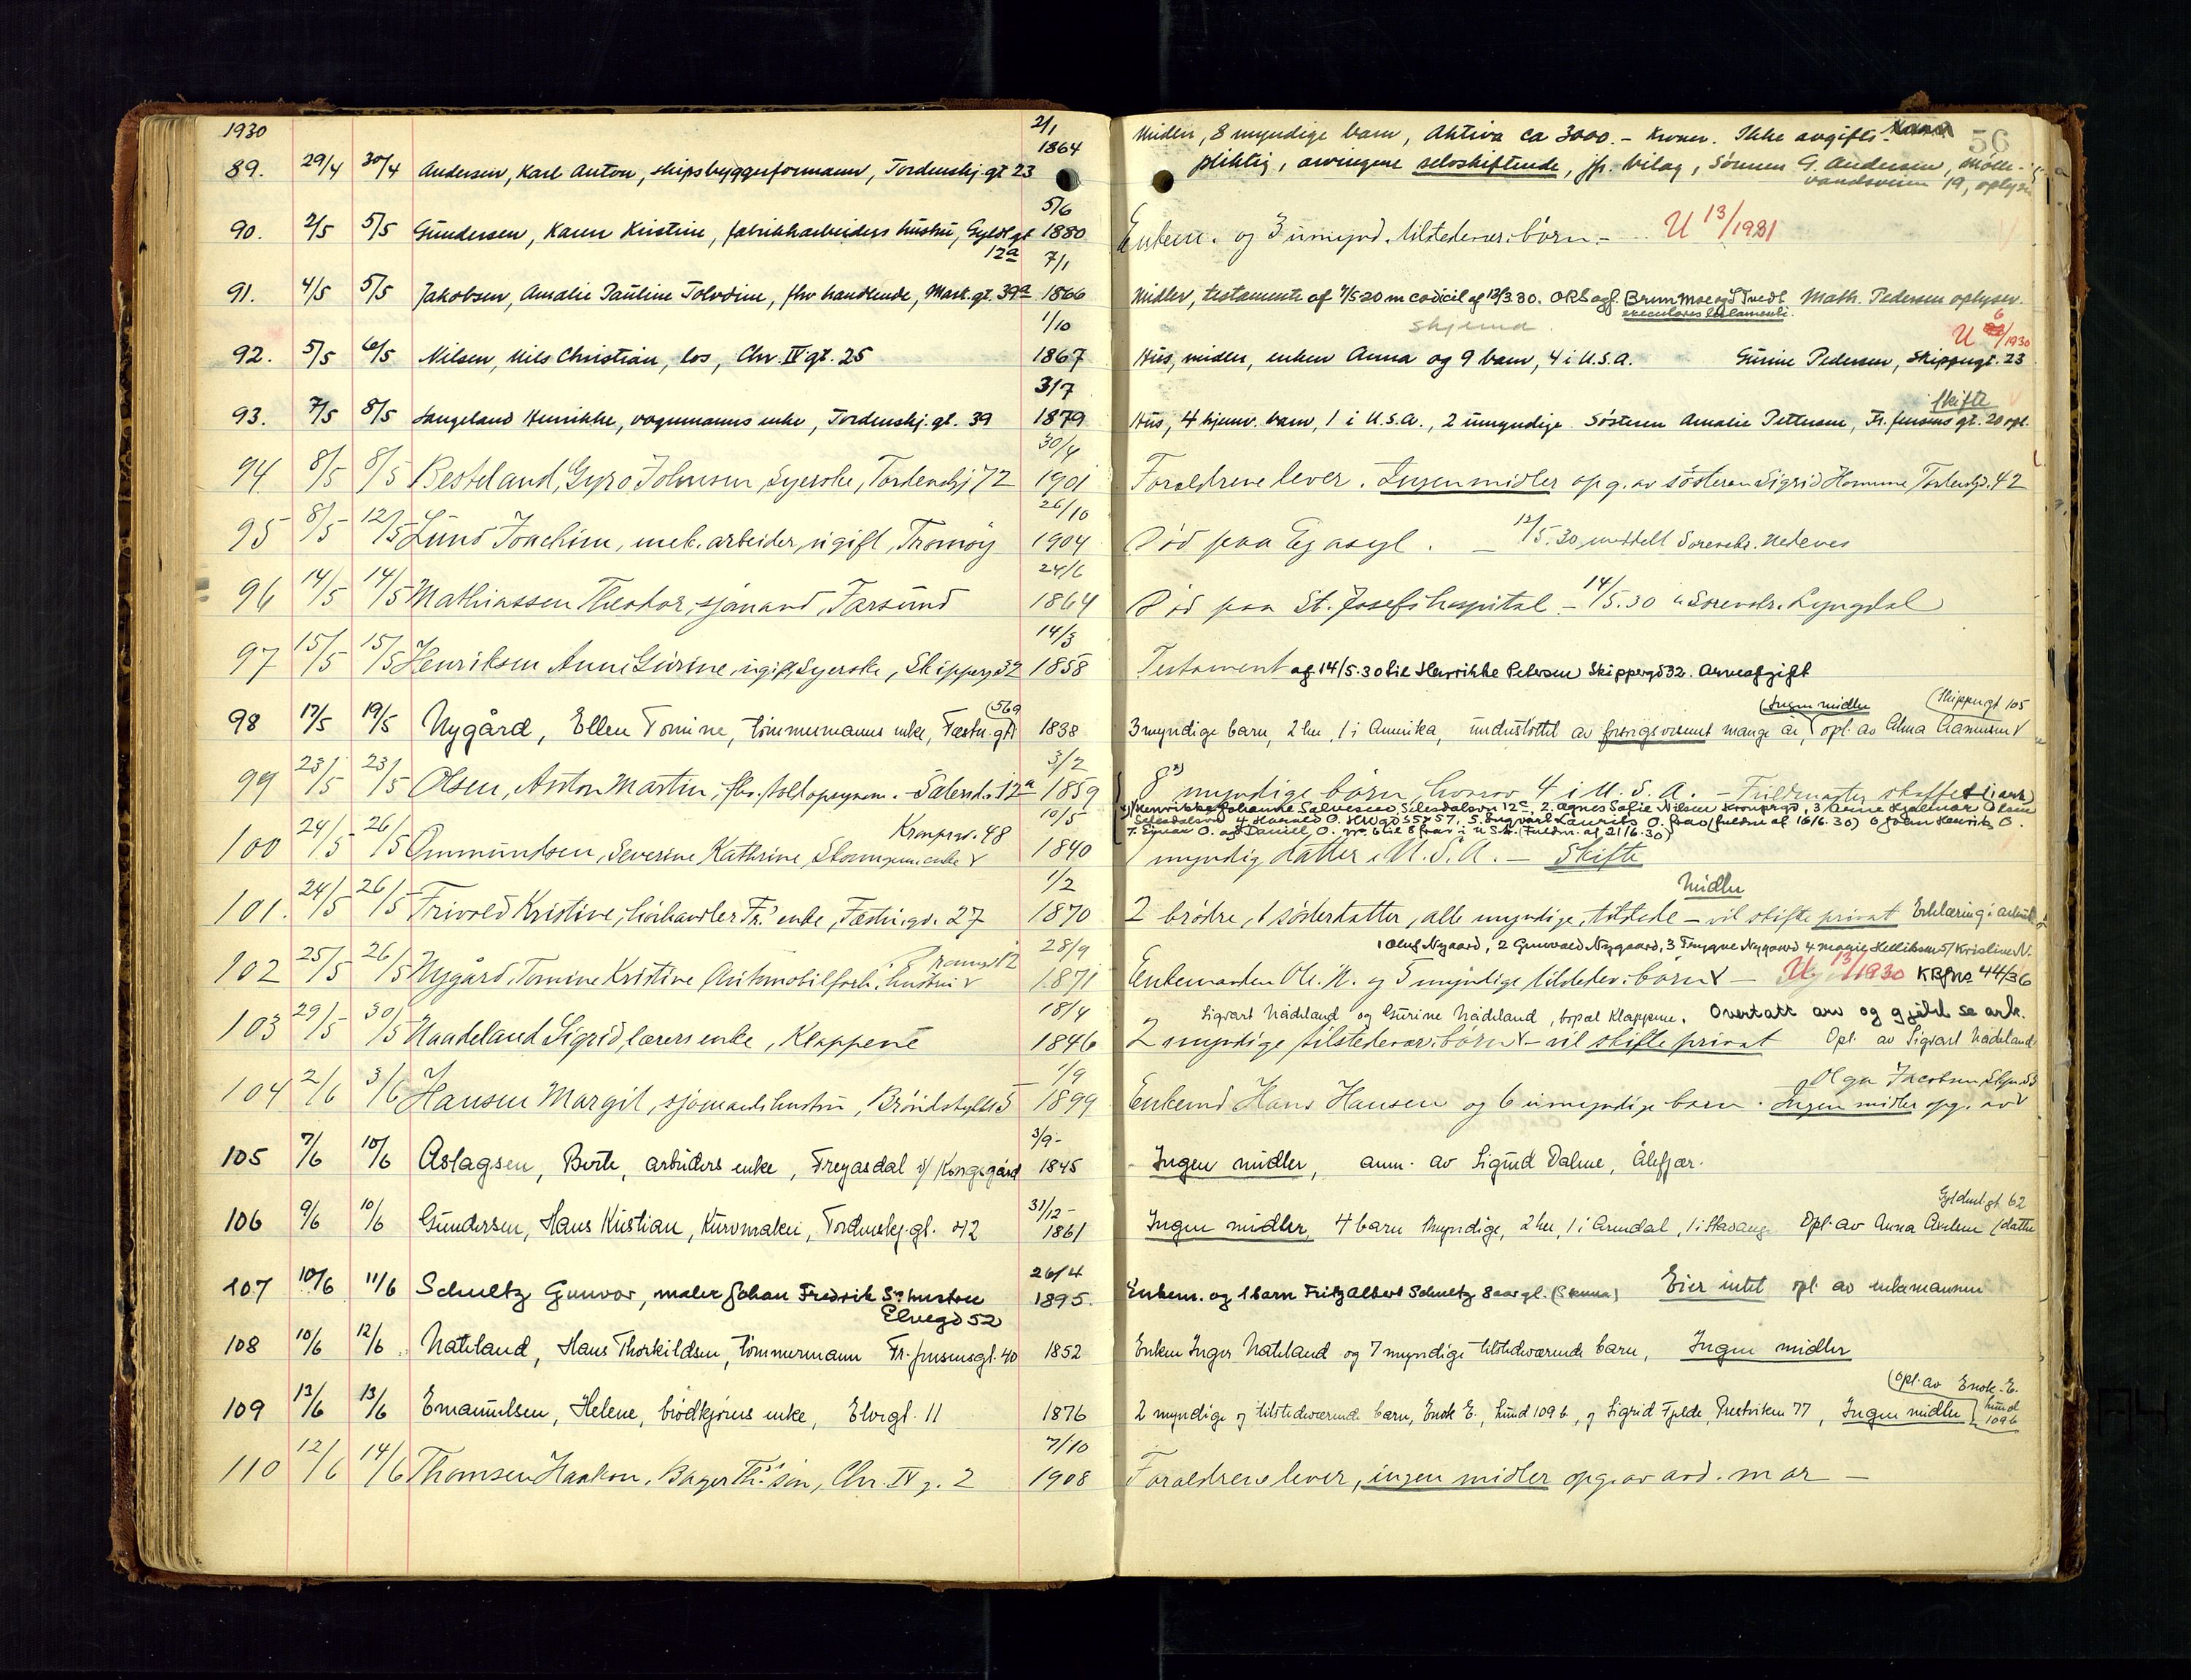 1930 2/1 Midler, 8 myndige barn, Aktiva ca 3000.- Kroner. Ikke avgifts- 56
89. 29/4 30/4 Andersen, Karl Anton, skipsbyggerformann, Tordenskj.gt 23 1864 pliktig, arvingene selvskiftende, jfr. bilag, Sønnen G. Andersen, Mølle-
vandsveien 19, oplyser
5/6
90. 2/5 5/5 Gundersen, Karen Kristine, fabrikkarbeiders hustru, Gyldl.gt 12a 1880 Enkem. og 3 umynd. tilstedevær. børn.- U 13/1931
7/1
91. 4/5 5/5 Jakobsen, Amalie Pauline Tolvdine, fhv handlende, Mark.gt. 39a 1866 Midler, testamente af 7/5 20 m codicil af 12/3 30. ORSagf. Brunn Moe og S Tvedt Math. Pedersen oplyser.
executores testamenti.
skjema
1/10 U 6/1930
92. 5/5 6/5 Nilsen, Nils Christian, los, Chr. IV gt. 25 1867 Hus, midler, enken Anna og 9 barn, 4 i U.S.A. Gurine Pedersen, Skippergt. 23
3/7 skifte
93. 7/5 8/5 Langeland Henrikke, vognmanns enke, Tordenskj.gt. 39 1879 Hus, 4 hjemv. barn, 1 i U.S.A., 2 umyndige Søsteren Amalie Pettersen, Fr. Jensens gt. 20 opl.
30/4
94 8/5 8/5 Besteland, Gyro Johnsen, Syerske, Tordenskj 72 1901 Foreldrene lever. Ingen midler opg. av søsteren Sigrid Homme Tordenskj. 42
26/10
95 8/5 12/5 Lund Joachim, mek. arbeider, ugift, Tromøy 1904 Død paa Eg asyl. - 12/5.30 meddelt Sorenskr. Nedenes
24/6
96 14/5 14/5 Mathiassen Theodor, sjømand, Farsund 1864 Død paa St. Josefs hospital - 14/5.30 " Sorenskr. Lyngdal
14/3
97 15/5 15/5 Henriksen Anne Gurine, ugift, Syerske, Skipperg 32 1858 Testament af 14/5.30 til Henrikke Petersen Skippergd 32. Arveafgift
(56a (Ingen midler (Skippergt 105
98 17/5 19/5 Nygård, Ellen Tomine, tømmermanns enke, Festn.gt 1838 3 myndige barn, 2 her, 1 i Amerika, understøttet av forsorgsvesenet mange år, opl. av Alma Aanensen
3/2
99 23/5 23/5 Olsen, Anton Martin, fhv. toldopsynsm. - Sølesd. 12a 1859 8 myndige børn, hvorav 4 i U.S.A. - Fuldmagter skaffet i ark
Henrikke Johanne Salvesen Sølesdalsv 12a, 2. Agnes Sofie Nilsen Kronprgd, 3 Arne Hjalmar Olsen
Sølesdalsv 4. Harald O. 5. Ingvart Laurits O. frav (fuldm af 16/6.30) 6 John Henrik O.
7. Einar O. og Daniel O. nr 6 til 8 frav i U.S.A. (Fuldm. af 21/6.30)
10/5 Kronprgt. 48
100 24/5 26/5 Ommundsen, Severine Kathrine, enke 1840 1 myndig datter i U.S.A. - Skifte
1/2 Midler
101. 24/5 26/5 Frivold Kristine, handler Fr.' enke, Festn.gd. 27 1870 2 brødre, 1 søsterdatter, alle myndige, tilstede - vil skifte privat Erklæring i
28/9 1 Oluf Nygaard, 2 Gunvald Nygaard, 3 Trygve Nygaard 4 Marie Helliksen 5/ Kristine N.
102 25/5 26/5 Nygård, Tomine Kristine Automobilforh. hustru 1871 Enkemanden Ole N. og 5 myndige tilstedev. børn - U 13/1930 44/36
18/4 Sigvart Nådeland og Gurine Nådeland, bopæl Klappene. Overtatt arv og gjæld se ark.
103 29/5 30/5 Naadeland Sigrid, lærers enke, Klappene 1846 2 myndige tilstedevær. børn - vil skifte privat Opl. av Sigvart Nådeland
1/9 Olga Jacobsen
104 2/6 3/6 Hansen Margit, sjømands hustru, 5 1899 Enkemd Hans Hansen og 6 umyndige barn. Ingen midler opg. av
3/9-
105 7/6 10/6 Aslagsen, Berte, arbeiders enke, Freyasdal v/ Kongsgård 1845 Ingen midler, anm. av Sigurd Dalene, Ålefjær.
31/12- Gyldenl.gt 62
106 9/6 10/6 Gundersen, Hans Kristian, kurvmaker, Tordenskj.gt. 42 1861 Ingen midler, 4 barn myndige, 2 her, 1 i Arendal, 1 i Stavang. Opl. av Anna Axelsen /datter
26/4
107 10/6 11/6 Schultz Gunvor, maler Johan Fredrik S's hustru 1895. Enkem. og 1 barn Fritz Albert Schultz 8 aar gl. Eier intet opl. av enkemannen
Elvegd 52
108 10/6 12/6 Nateland, Hans Thorkildsen, tømmermann Fr. Jensensgt. 40 1852 Enken Inger Nateland og 7 myndige tilstedeværende barn, Ingen midler
(opl. av Enok E.
109 13/6 13/6 Emanuelsen, Helene, brødkjørers enke, Elvegt. 11 1876 2 myndige og tilstedeværende barn, Enok E., Lund 109 b, og Sigrid Fjelde, Prestviken 77, Ingen midler Lund 109 b
7/10
110 12/6 14/6 Thomsen Haakon, Bager Th.'s søn, Chr. IV g. 2 1908 Foreldrene lever, ingen midler opg. av avd. mor -